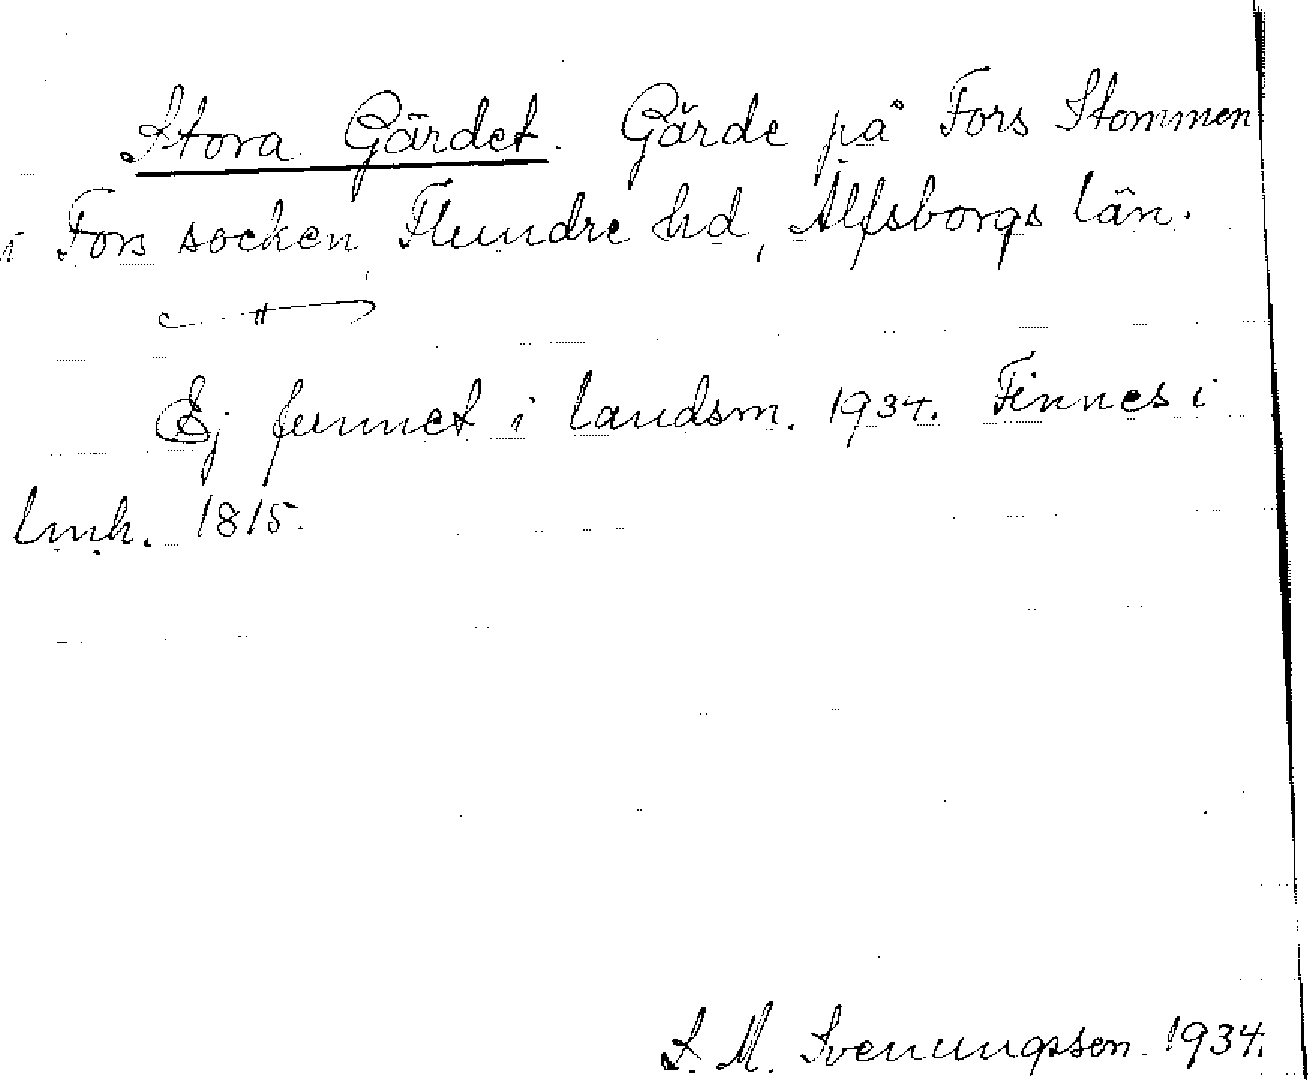 Stora Gärdet. Gärde på Fors Stommen
i Fors socken, Flundre hd, Älfsborgs län.
—"—
Ej funnet i landsm. 1934. Finnes i
lmh. 1815.
S. M. Svenungsson 1934.